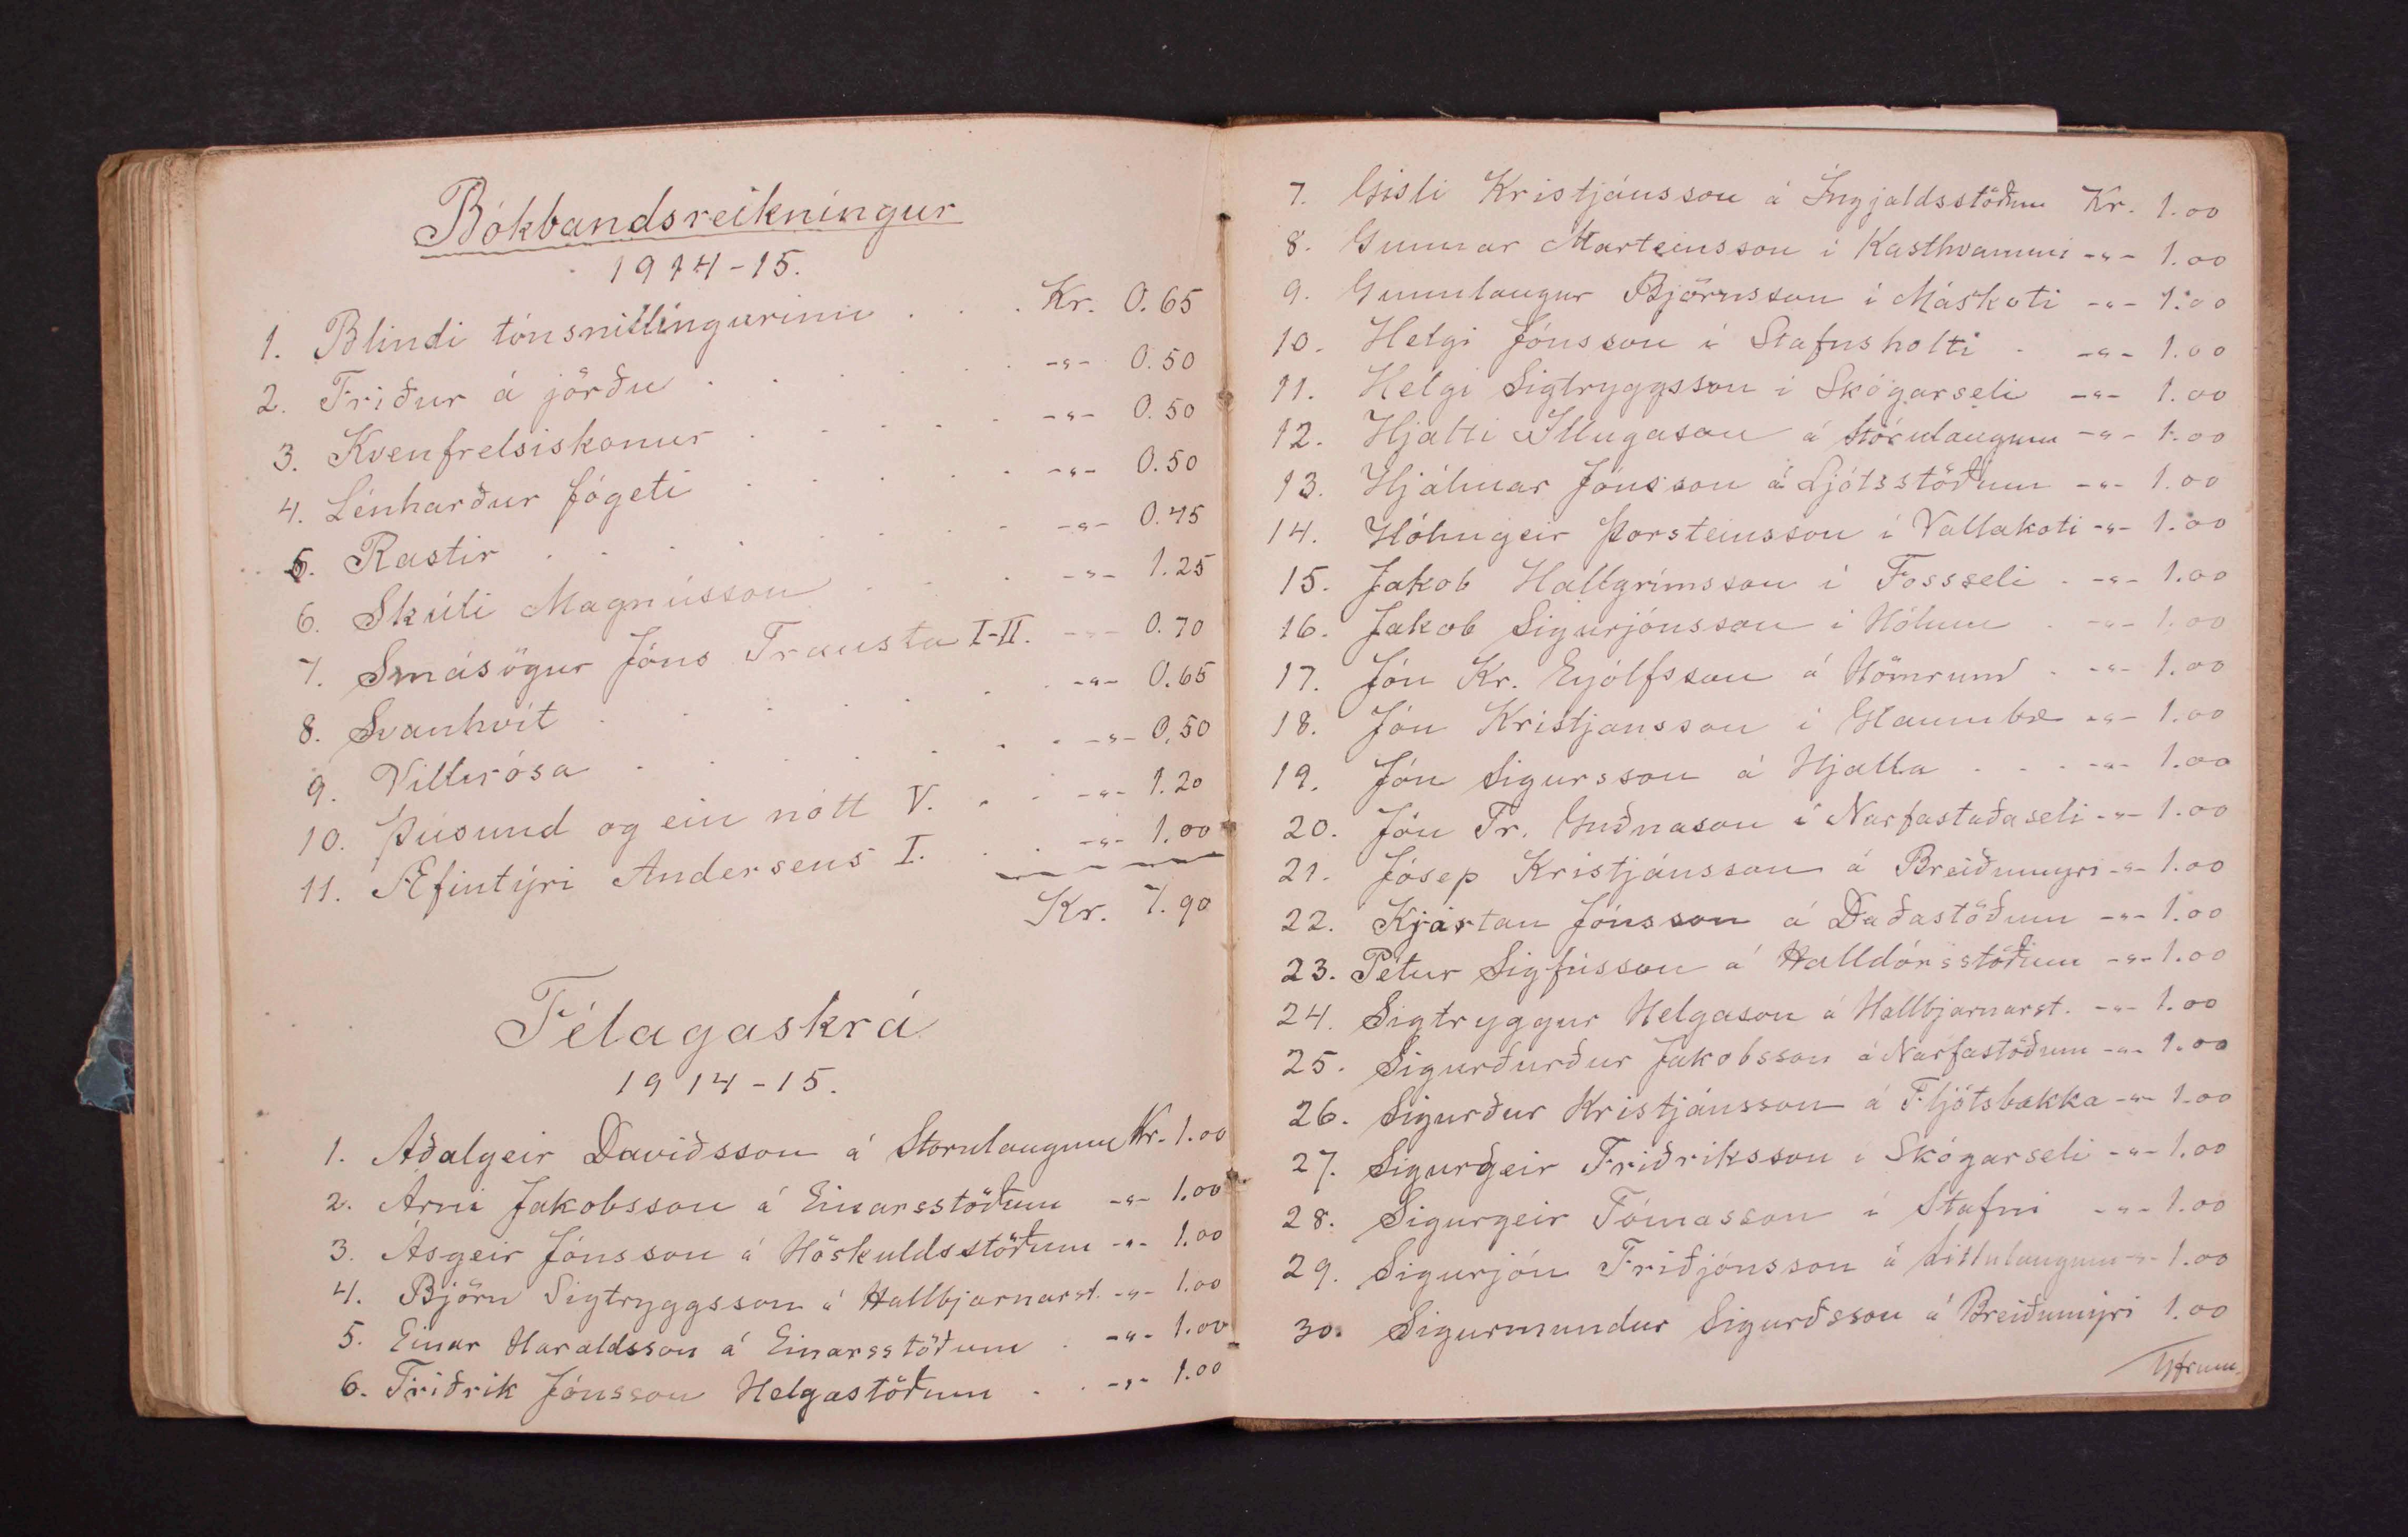 Bókbandsreikningur
1914-15.
1. Blindi tónsnillingurinn . . . Kr. 0.65
2. Friður á jörðu . . . . . . -"- 0.50
3. Kvenfrelsiskonur . . . . . -"- 0.50
4. Lénharður fógeti . . . . . -"- 0.50
5. Rastir . . . . . . . . -"- 0.45
6. Skúli Magnússon . . . -"- 1.25
7. Smásögur Jóns Trausta I-II. -"- 0.70
8. Svanhvít . . . . . . -"- 0.65
9. Villirósa . . . . . . . -"- 0,50
10. Þúsund og ein nótt V. . . -"- 1.20
11. Æfintýri Andersens I. . . -"- 1.00
Kr. 7.90
Félagaskrá
1914-15.
1. Aðalgeir Davíðsson á Stórulaugum Kr. 1.00
2. Árni Jakobsson á Einarsstöðum -"- 1.00
3. Ásgeir Jónsson á Höskuldsstöðum -"- 1.00
4. Björn Sigtryggsson á Hallbjarnarst. -"- 1.00
5. Einar Haraldsson á Einarsstöðum . -"- 1.00
6. Friðrik Jónsson Helgastöðum . . -"- 1.00
7. Gísli Kristjánsson á Íngjaldsstöðum Kr. 1.00
8. Gunnar Marteinsson í Kasthvammi -"- 1.00
9. Gunnlaugur Björnsson í Máskoti -"- 1.00
10. Helgi Jónsson í Stafnsholti . -"- 1.00
11. Helgi Sigtryggsson í Skógarseli -"- 1.00
12. Hjalti Illugason á Stórulaugum -"- 1.00
13. Hjálmar Jónsson á Ljótsstöðum -"- 1.00
14. Hólmgeir Þorsteinsson í Vallakoti -"- 1.00
15. Jakob Hallgrímsson í Fossseli . -"- 1.00
16. Jakob Sigurjónsson í Hólum . -"- 1.00
17. Jón Kr. Eyjólfsson á Hömrum . -"- 1.00
18. Jón Kristjansson í Glaumbæ -"- 1.00
19. Jón Sigursson á Hjalla . . . -"- 1.00
20. Jón Fr. Guðnason í Narfastaðaseli -"- 1.00
21. Jósep Kristjánsson á Breiðumýri -"- 1.00
22. Kjartan Jónsson á Daðastöðum -"- 1.00
23. Pétur Sigfússon á Halldórsstöðum -"- 1.00
24. Sigtryggur Helgason á Hallbjarnarst. -"- 1.00
25. Sigurðurður Jakobsson á Narfastöðum -"- 1.00
26. Sigurður Kristjánsson á Fljótsbakka -"- 1.00
27. Sigurgeir Friðriksson í Skógarseli -"- 1.00
28. Sigurgeir Tómasson í Stafni -"- 1.00
29. Sigurjón Friðjónsson á Litlulaugum -"- 1.00
30. Sigurmundur Sigurðsson á Breiðumýri 1.00